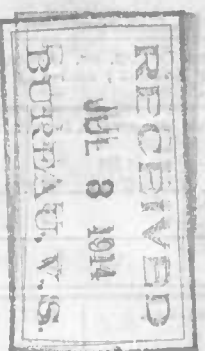 RECEIVED
JUL 8 1914
BUREAU, V. S.